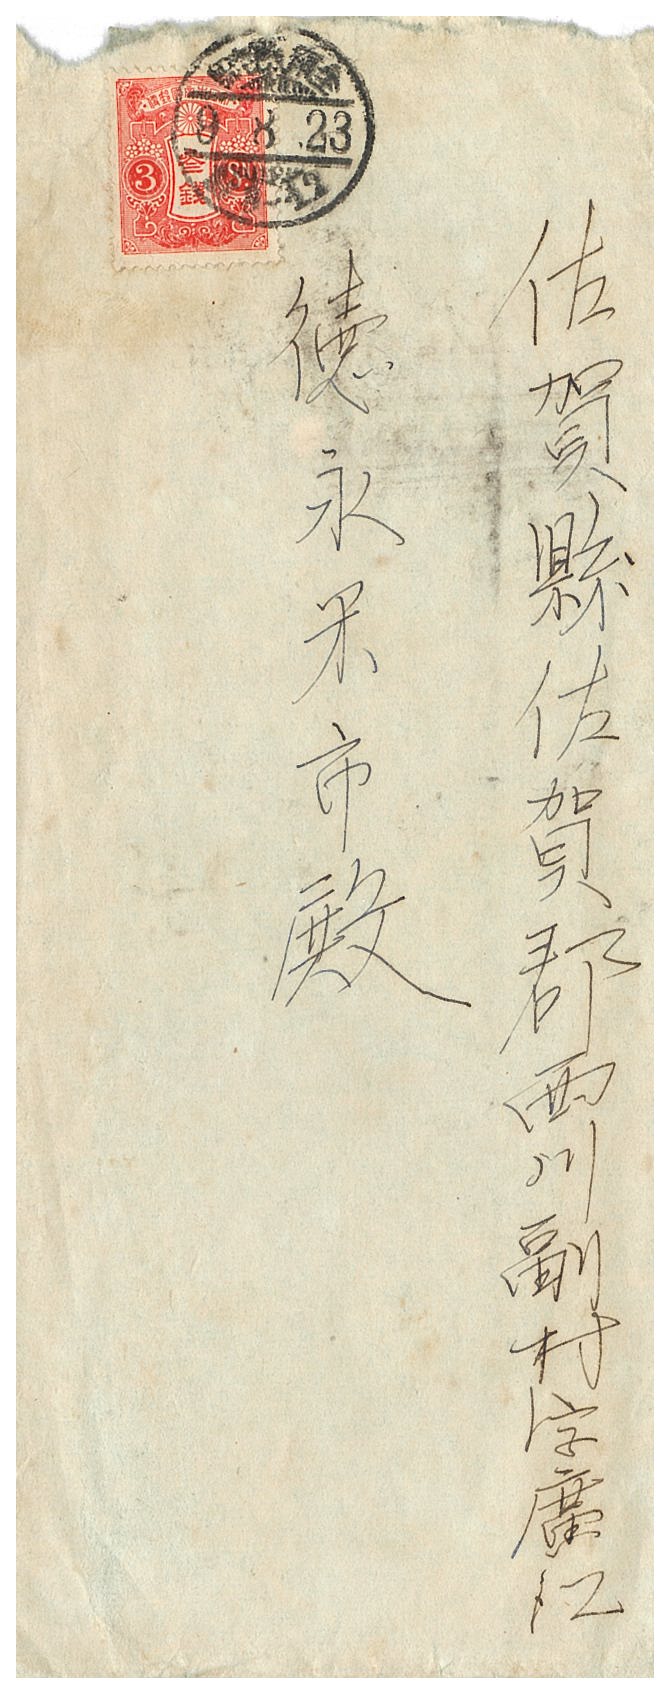 佐賀縣佐賀郡西川副村字廣江
徳永米市殿
3
錢
9.8.23